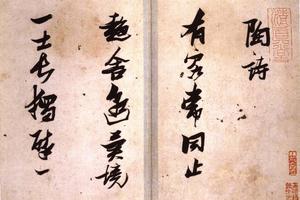 陶詩
有客常同止
趣舍邈異境
一士長獨醉一